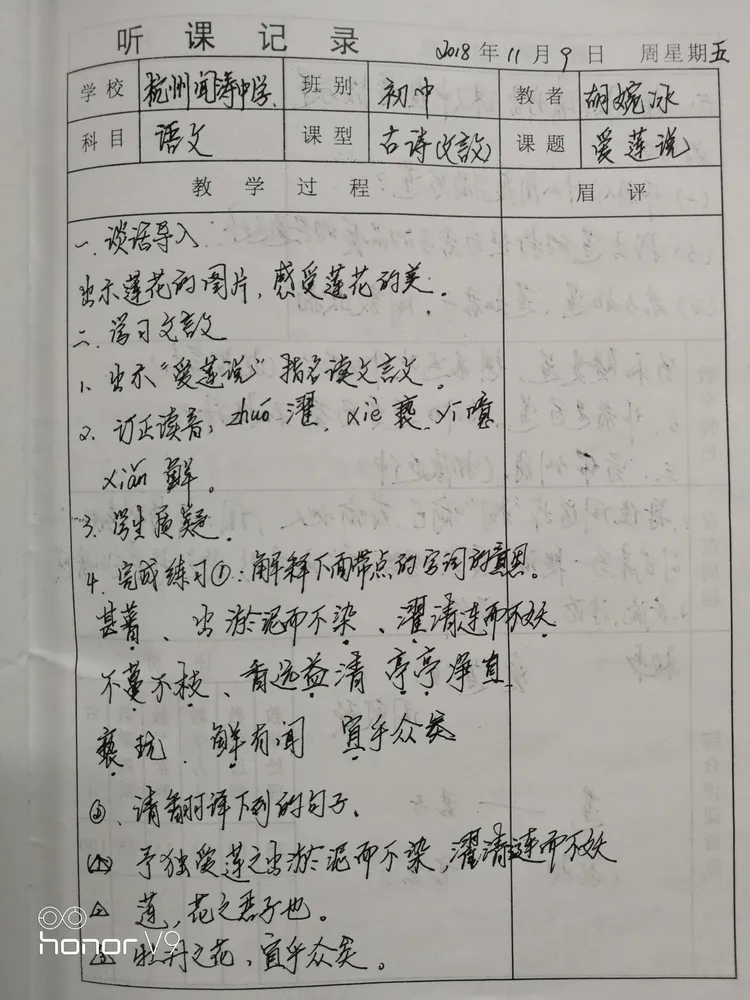 听课记录 2018年11月9日 周星期五
学校 杭州闻涛中学 班别 初中 教者 胡婉冰
科目 语文 课型 古诗(文言文) 课题 爱莲说
教学过程 眉评
一、谈话导入
出示莲花的图片，感受莲花的美。
二、学习文言文
1、出示“爱莲说”指名读文言文。
2、订正读音：zhuó 濯、xiè 亵、yī 噫
xiǎn 鲜。
3、学生质疑。
4、完成练习①：解释下面带点的字词的意思。
甚蕃、出淤泥而不染、濯清涟而不妖
不蔓不枝、香远益清 亭亭净直
亵玩、鲜有闻 宜乎众矣
②、请翻译下列的句子。
⚠1 予独爱莲之出淤泥而不染，濯清涟而不妖
2 莲，花之君子也。
3 牡丹之花，宜乎众矣。
honor V9